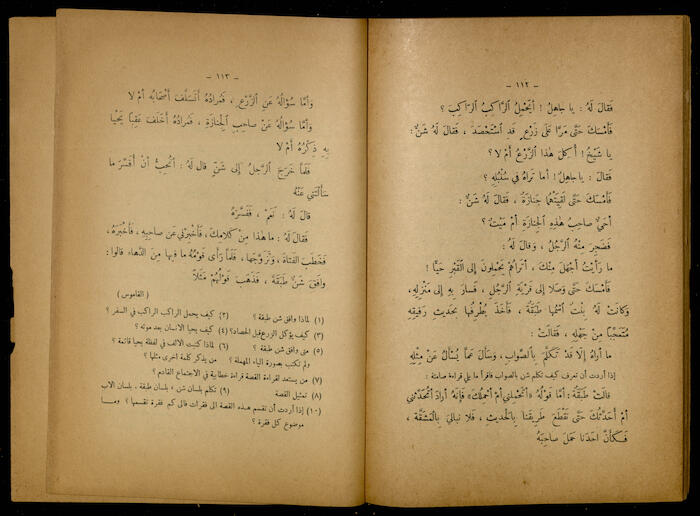 - ١١٢ -
فَقَالَ لَهُ : يا جاهِلُ ! أَيَحْمِلُ الرَّاكِبُ الرَّاكِبَ ؟
فَأَمْسَكَ حَتَّى مَرَّا عَلَى زَرْعٍ قَدِ اسْتَحْصَدَ ، فَقَالَ لَهُ شَنٌّ :
يا شَيْخُ ! أُكِلَ هٰذا الزَّرْعُ أَمْ لا ؟
فَقَالَ : يا جاهِلُ ! أما تَراهُ في سُنْبُلِهِ ؟
فَأَمْسَكَ حَتَّى لَقِيَتْهُما جَنازَةٌ ، فَقَالَ لَهُ شَنٌّ :
أَحَيٌّ صاحِبُ هٰذِهِ الجِنازَةِ أَمْ مَيِّتٌ ؟
فَضَجِرَ مِنْهُ الرَّجُلُ ، وَقالَ لَهُ :
ما رَأَيْتُ أَجْهَلَ مِنْكَ ، أَتَراهُمْ يَحْمِلُونَ إِلَى القَبْرِ حَيًّا !
فَأَمْسَكَ حَتَّى وَصَلا إِلى قَرْيَةِ الرَّجُلِ ، فَسارَ بِهِ إِلى مَنْزِلِهِ ،
وَكانَتْ لَهُ بِنْتٌ اسْمُها طَبَقَةُ ، فَأَخَذَ يُطْرِفُها بِحَديثِ رَفيقِهِ
مُتَعَجِّبًا مِنْ جَهْلِهِ ، فَقالَتْ :
ما أَراهُ إِلَّا قَدْ تَكَلَّمَ بِالصَّوابِ ، وَسَأَلَ عَمَّا يُسْأَلُ عَنْ مِثْلِهِ
إذا أردت أن تعرف كيف تكلم شن بالصواب فاقرأ ما يلي قراءة صامتة :
قالَتْ طَبَقَةُ : أَمَّا قَوْلُهُ «أَتَحْمِلُني أَمْ أَحْمِلُكَ» فَإِنَّهُ أَرادَ أَتُحَدِّثُني
أَمْ أُحَدِّثُكَ حَتَّى نَقْطَعَ طَريقَنا بِالحَديثِ ، فَلا نبالِيَ بِالمَشَقَّةِ ،
فَكَأَنَّ احَدَنا حَمَلَ صاحِبَهُ
- ١١٣ -
وَأَمَّا سُؤالُهُ عَنِ الزَّرْعِ ، فَمُرادُهُ أَتَسَلَّفَ أَصْحابُهُ أَمْ لا
وَأَمَّا سُؤالُهُ عَنْ صاحِبِ الجِنازَةِ ، فَمُرادُهُ أَخَلَّفَ عَقِبًا يَحْيا
بِهِ ذِكْرُهُ أَمْ لا
فَلَمَّا خَرَجَ الرَّجُلُ إِلى شَنٍّ قالَ لَهُ : أَتُحِبُّ أَنْ أُفَسِّرَ ما
سَأَلْتَني عَنْهُ
قالَ لَهُ : نَعَمْ ، فَفَسَّرَهُ
فَقالَ لَهُ : ما هٰذا مِنْ كَلامِكَ ، فَأَخْبِرْني عَنْ صاحِبِهِ ، فَأَخْبَرَهُ ،
فَخَطَبَ الفَتاةَ ، وَتَزَوَّجَها ، فَلَمَّا رَأَى قَوْمُهُ ما فيها مِنَ الدَّهاءِ قالوا :
وافَقَ شَنٌّ طَبَقَةَ ، فَذَهَبَ قَوْلُهُمْ مَثَلًا
(القاموس)
(١) لماذا وافق شن طبقة ؟ (٢) كيف يحمل الراكب الراكب في السفر ؟
(٣) كيف يؤكل الزرع قبل الحصاد؟ (٤) كيف يحيا الانسان بعد موته ؟
(٥) متى وافق شن طبقة ؟ (٦) لماذا كتبت الالف في لفظة يحيا قائمة ؟
ولم تكتب بصورة الياء المهملة ؟ من يذكر كلمة اخرى مثلها ؟
(٧) من يستعد لقراءة القصة قراءة خطابية في الاجتماع القادم ؟
(٨) تمثيل القصة (٩) تكلم بلسان شن ، بلسان طبقة . بلسان الاب
(١٠) إذا أردت أن تقسم هذه القصة الى فقرات فالى كم فقرة تقسمها ؟ وما
موضوع كل فقرة ؟